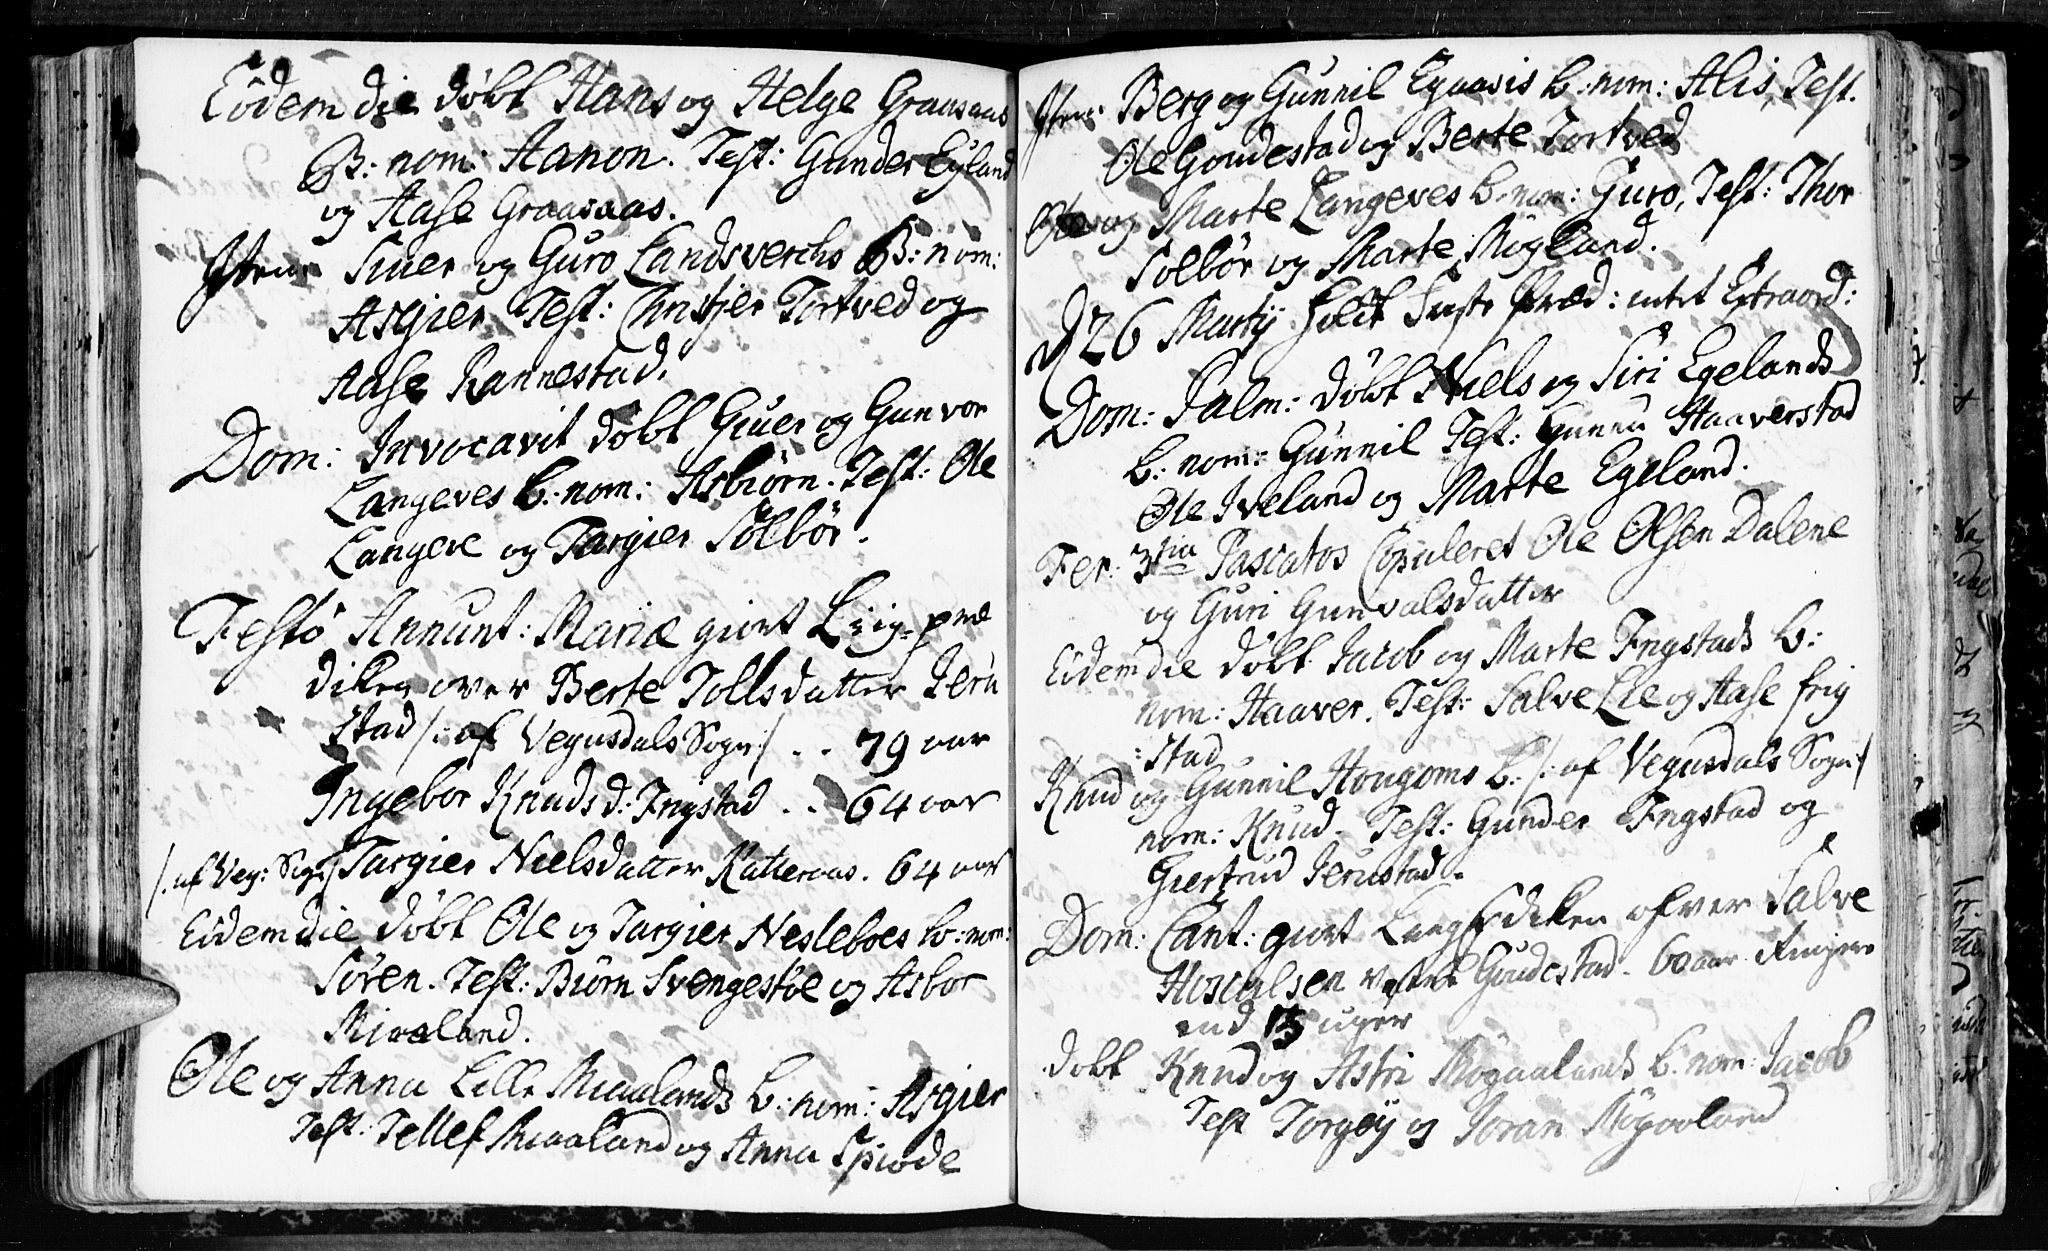 Eodem die døbt Hans og Helge Graasaas
B: nom: Hanon. Test: Gunder Eyland
og Aase Graasaas.
Item Siuer og Guro Landsverchs B: nom:
Asgier Test: Christjer Tortved og
Aase Rannestad.
Dom: Invocavit døbt Giuer og Gunvor
Langeves b: nom: Asbiørn. Test: Ole
Langeve og Targier Sølbør.
Festo Annunt: Mariæ giort Liig-præ
diken over Berte Tollsdatter Jeru
stad /: af Vegusdals Sogn :/ . . 79 aar
Ingebor Knudsd: Ingstad . . 64 aar
/: af Veg: Sogn :/ Targier Nielsdatter Katteraas. 64 aar
Eodem die døbt Ole og Targier Nesleboes b: nom:
Søren. Test: Biørn Svengestøe og Asbor
Miaaland.
Ole og Anna Lille Miaalands b: nom: Asgier
Test: Tellef Miaaland og Anna Spiode
Item Berg og Gunnil Egaasis b: nom: Alis, Test.
Ole Goudestad og Berte Tortved
Ole og Marte Langeves b: nom: Guro, Test: Thor
Sølbør og Marte Mögland.
d 26 Martij holdt Præd: intet Extraord:
Dom: Palm: døbt Niels og Siri Egelands
b: nom: Gunnil Test: Haaverstad
Ole Iveland og Marte Egeland.
Fer: 3tia Pascatos Copuleret Ole Olsen Dalene
og Guri Gunvalsdatter
Eodem die døbt Jacob og Marte Ingstads b:
nom: Haaver. Test: Salve Lie og Aase frig
:stad
Knud og Gunnil Hougoms b: /: af Vegusdals Sogn :/
nom: Knud. Test: Gunder Ingstad og
Giertrud Jerustad.
Dom: Cant: giort diken ofver Salve
Goudestad. 60 aar Ringere
end 13 uger
døbt Knud og Astri Mögaalands b. nom: Jacob
Test Torgöy og Joran Mögaaland